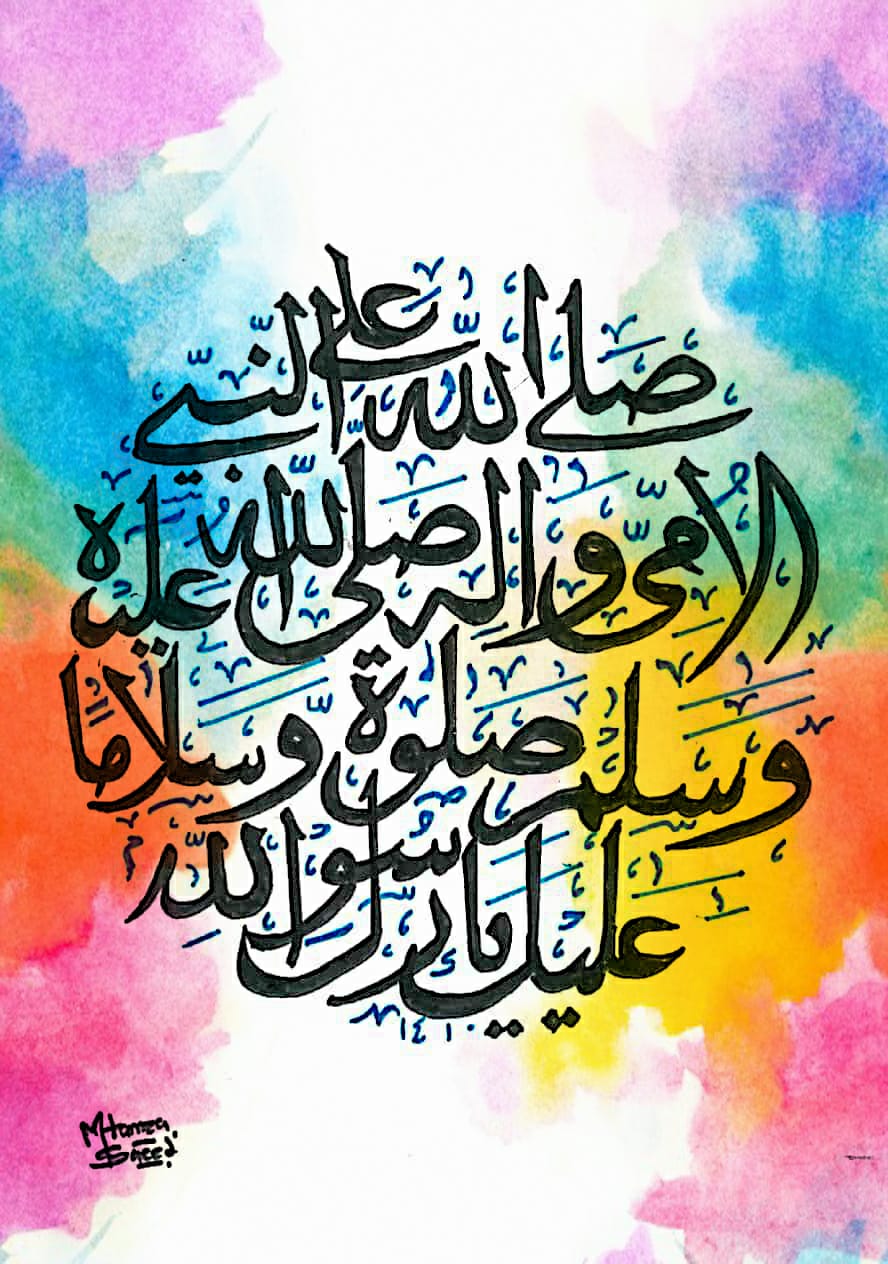 صَلَّى اللهُ عَلَى النَّبِيِّ
الْاُمِّيِّ وَاٰلِهٖ صَلَّى اللهُ عَلَيْهِ
وَسَلَّمَ صَلٰوةً وَّسَلَامًا
عَلَيْكَ يَا رَسُوْلَ اللهِ
١٤١٠
M Hamza
Saeed